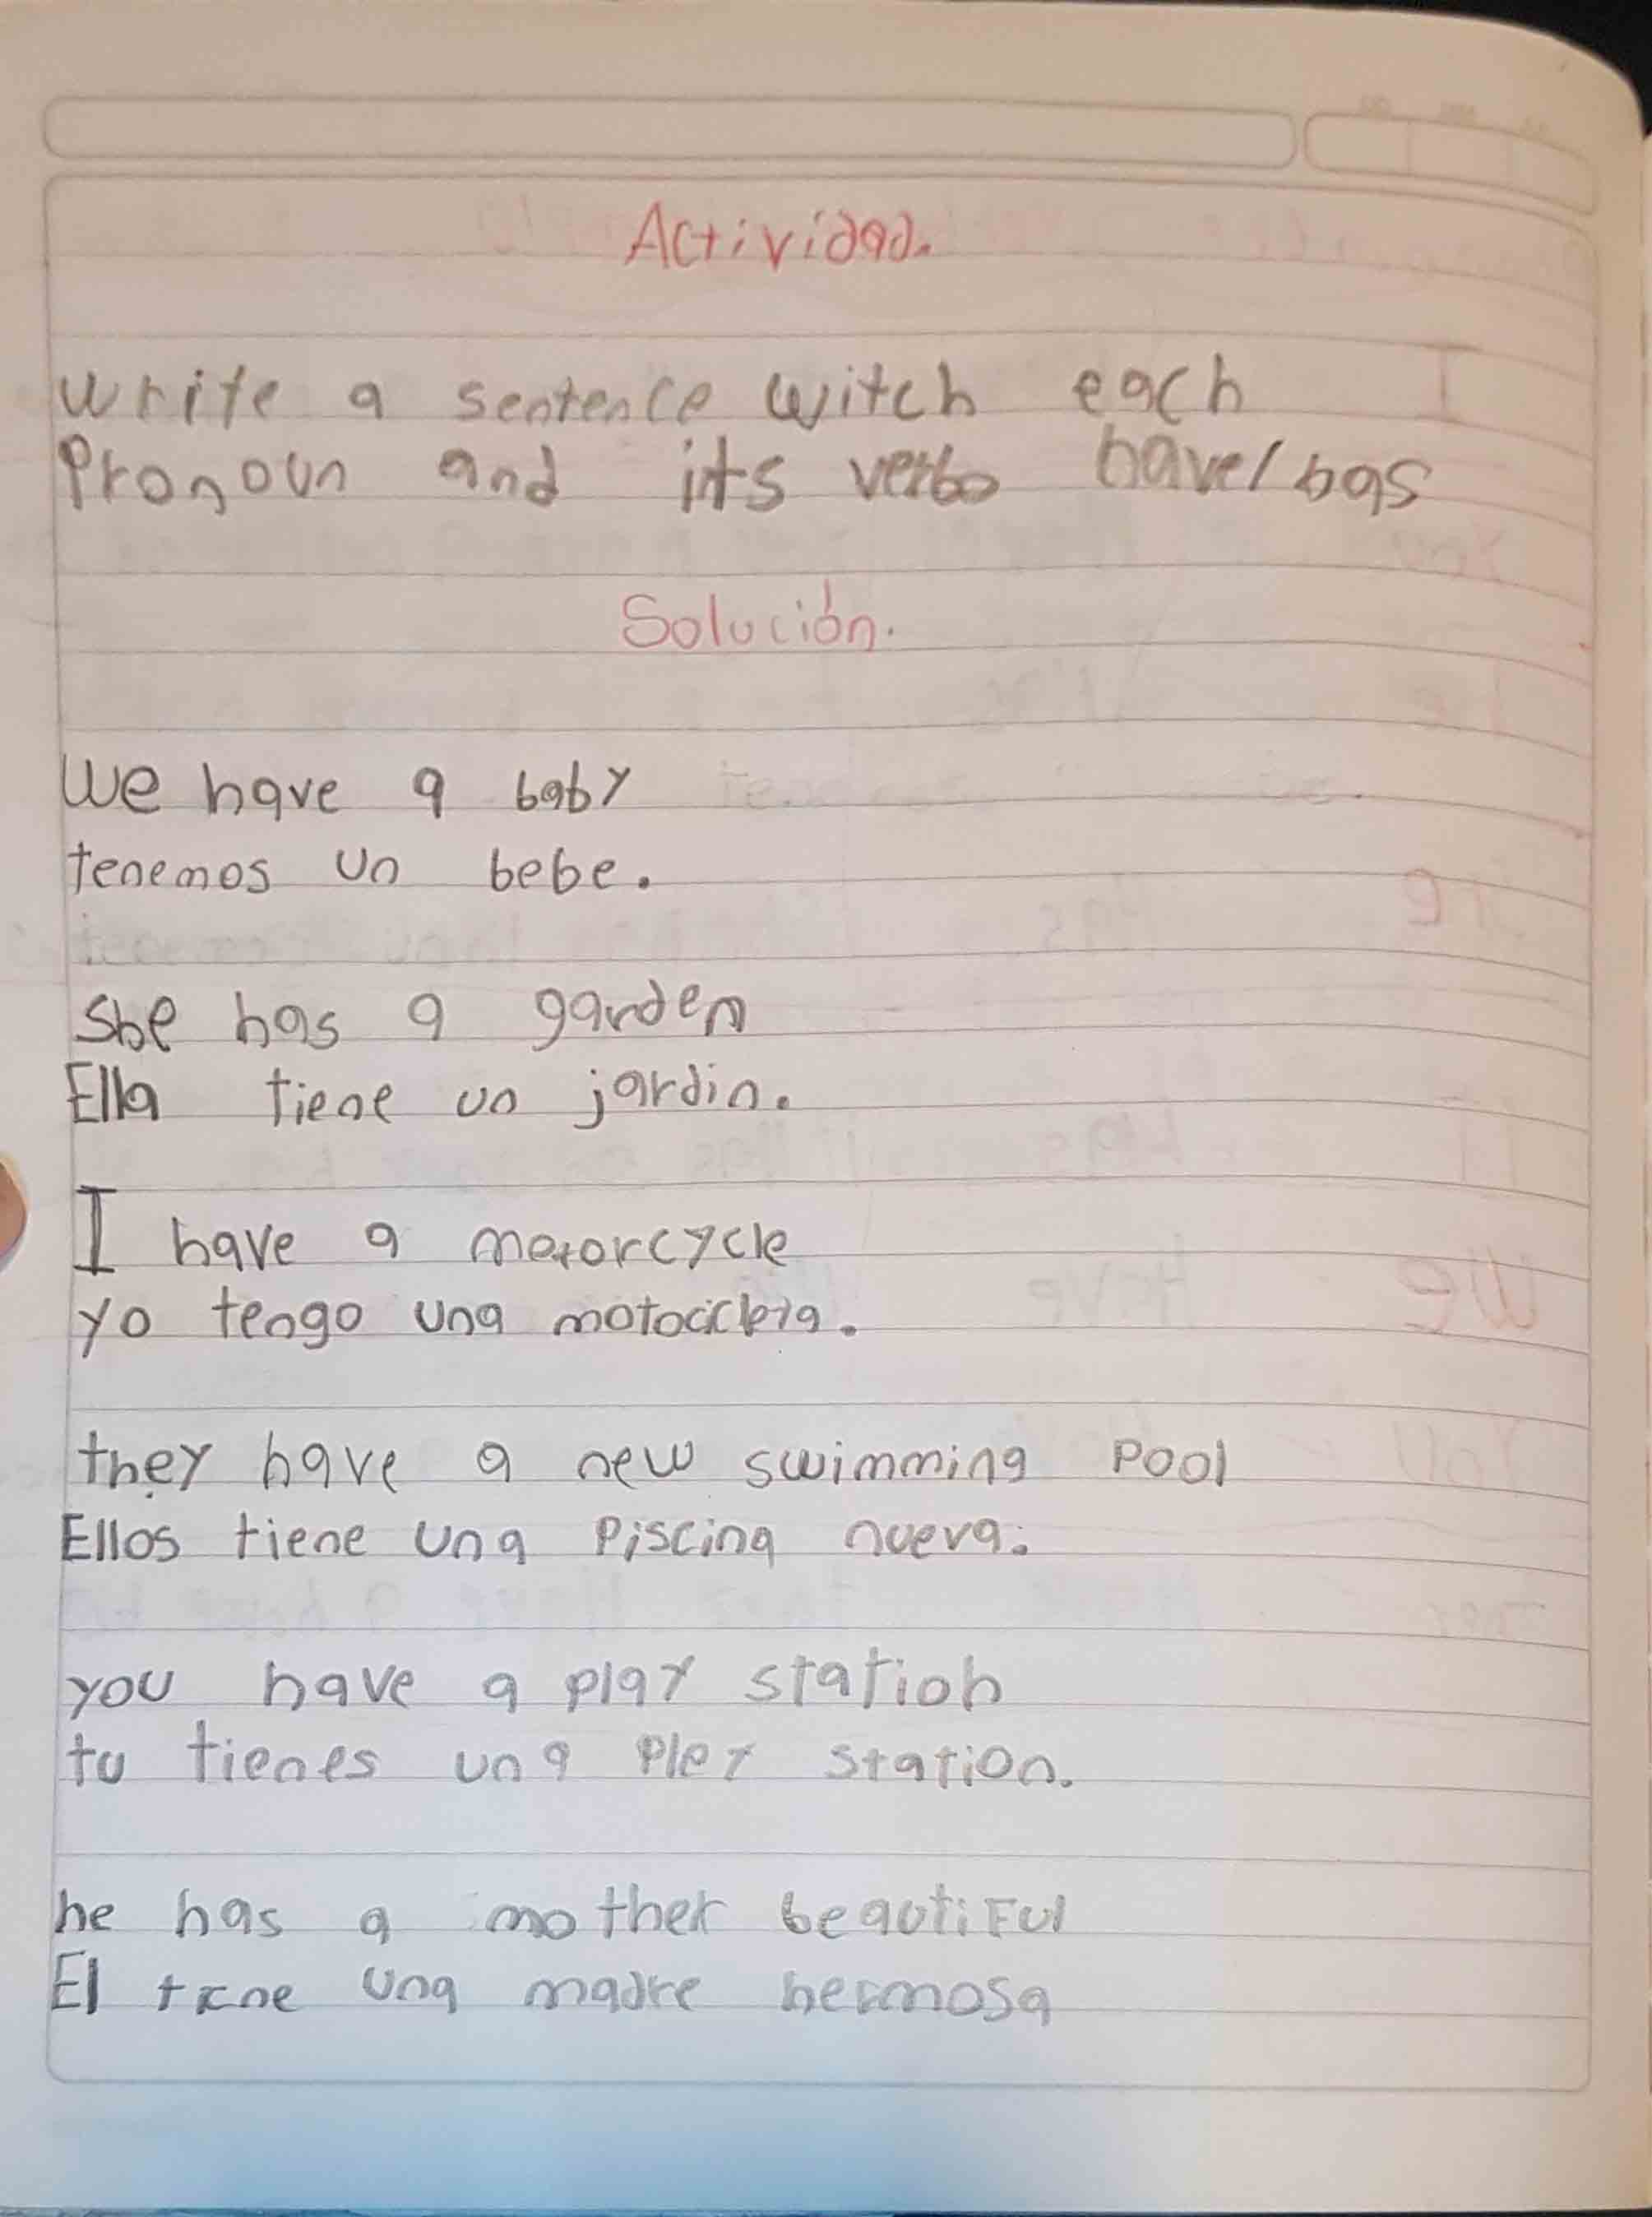 Actividad.
write a sentence witch each
Pronoun and its verbo have/has
Solución.
We have a baby
tenemos un bebe.
She has a garden
Ella tiene un jardin.
I have a motorcycle
yo tengo una motocicleta.
they have a new swimming Pool
Ellos tiene una Piscina nueva.
you have a play station
tu tienes una Pley station.
he has a mother beautiFul
El tiene una madre hermosa